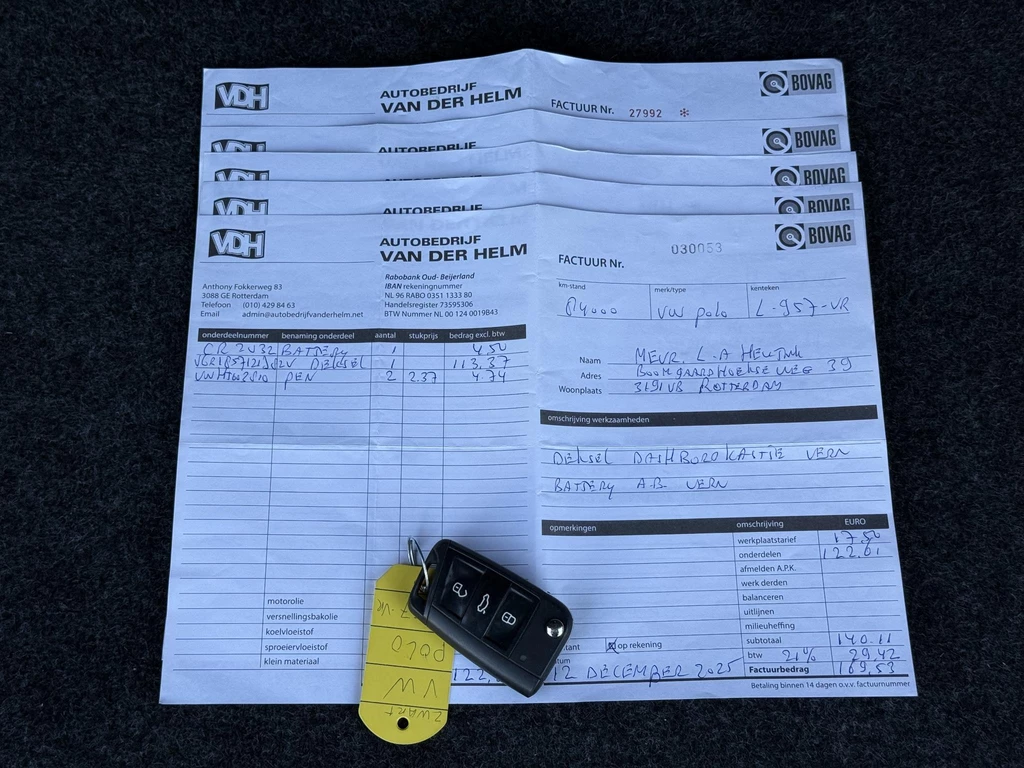 VDH
AUTOBEDRIJF
VAN DER HELM
FACTUUR Nr. 27992 *
BOVAG
VDH
AUTOBEDRIJF
BOVAG
VDH
BOVAG
VDH
AUTOBEDRIJF
BOVAG
VDH
AUTOBEDRIJF
VAN DER HELM
FACTUUR Nr.
030053
BOVAG
Anthony Fokkerweg 83
3088 GE Rotterdam
Telefoon (010) 429 84 63
Email admin@autobedrijfvanderhelm.net
Rabobank Oud- Beijerland
IBAN rekeningnummer
NL 96 RABO 0351 1333 80
Handelsregister 73595306
BTW Nummer NL 00 124 0019B43
km-stand merk/type kenteken
84000 VW Polo L-957-VR
Naam MEVR. L.A
Adres BOOMGAARDHOEKSEWEG 39
Woonplaats 3191VB ROTTERDAM
onderdeelnummer benaming onderdeel aantal stukprijs bedrag excl. btw
CR 2032 BATTERY 1 4.50
DEKSEL 1 113.37
PEN 2 2.37 4.74
omschrijving werkzaamheden
DEKSEL DASHBORDKASTJE VERN
BATTERY A.B. VERN
opmerkingen
omschrijving EURO
werkplaatstarief 17.50
onderdelen 122.61
afmelden A.P.K.
werk derden
balanceren
uitlijnen
milieuheffing
subtotaal 140.11
btw 21% 29,42
Factuurbedrag 169,53
motorolie
versnellingsbakolie
koelvloeistof
sproeiervloeistof
klein materiaal
op rekening
12 DECEMBER 2025
Betaling binnen 14 dagen o.v.v. factuurnummer
7-VR
POLO
VW
ZWART